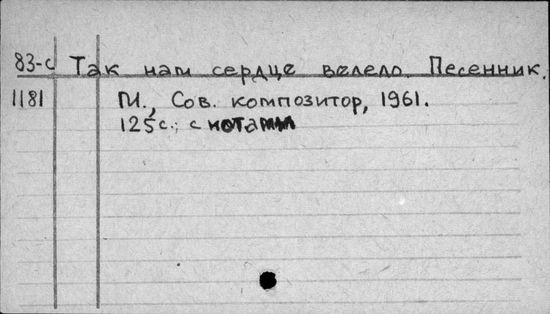 83-с Так нам сердце велело. Песенник.
1181 М., Сов. композитор, 1961.
125с.; с нотами